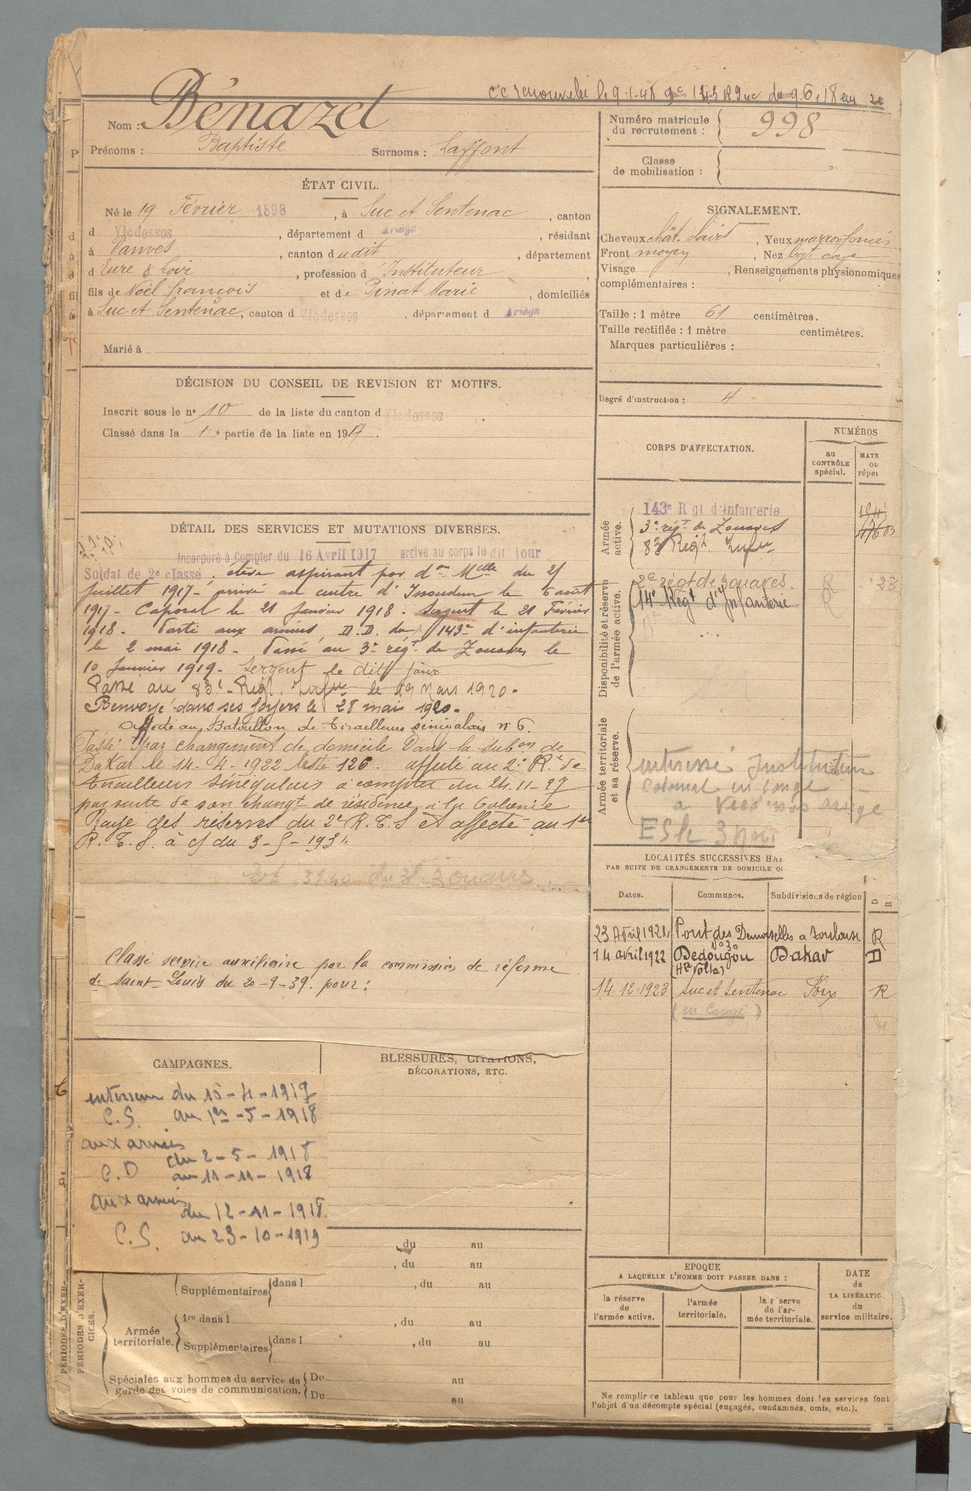 Nom : Bénazet
Prénoms : Baptiste Surnoms : Laffont
Numéro matricule
du recrutement : 998
Classe
de mobilisation :
ÉTAT CIVIL.
Né le 19 Février 1898, à Suc et Sentenac, canton
d Vicdessos, département d Ariège, résidant
à Vanves, canton dudit, département
d Eure & Loir, profession d Instituteur
fils de Noël François et de Pinat Marie, domiciliés
à Suc et Sentenac, canton d Vicdessos, département d Ariège
Marié à
SIGNALEMENT.
Cheveux chât. clairs, Yeux marron foncés
Front moyen, Nez
Visage, Renseignements physionomiques
complémentaires :
Taille : 1 mètre 61 centimètres.
Taille rectifiée : 1 mètre centimètres.
Marques particulières :
Degré d'instruction : 4
DÉCISION DU CONSEIL DE REVISION ET MOTIFS.
Inscrit sous le n° 10 de la liste du canton d Vicdessos
Classé dans la 1e partie de la liste en 1917.
CORPS D'AFFECTATION.
NUMÉROS
au
CONTRÔLE
spécial.
MATR
OU
réper
Armée
active.
143e Rgt d'Infanterie
3e régt de Zouaves
83e Régt Infie
Disponibilité et réserve
de l'armée active.
2e régt de zouaves. 23
14e Régt d'Infanterie
Armée territoriale
et sa réserve.
intéressé Instituteur
Colonial en congé
DÉTAIL DES SERVICES ET MUTATIONS DIVERSES.
Incorporé à Compter du 16 Avril 1917 arrivé au corps le dit jour
Soldat de 2e classe, élève aspirant par don Mlle du 25
juillet 1917 - arrivé au centre d'Issoudun le 6 août
1917 - Caporal le 21 Janvier 1918. Sergent le 21 Février
1918. Parti aux armées, D.D. du 143e d'infanterie
le 2 mai 1918. Passé au 3e régt de Zouaves le
10 Janvier 1919. Sergent le dit jour
Passé au 83e Régt Infie le 29 Mars 1920.
Renvoyé dans ses foyers le 28 mai 1920.
Affecté au Bataillon de Tirailleurs sénégalais n° 6.
Passé par changement de domicile dans la subon de
Dakar le 14-4-1922 liste 126. affecté au 2e Rt de
tirailleurs sénégalais à compter du 24-11-27
par suite de son changt de résidence à la Colonie
Rayé des réserves du 2e R.T.S et affecté au 1er
R.T.S. à c/ du 3-5-193
Classé service auxiliaire par la commission de réforme
de Saint-Louis du 20-9-39. pour :
LOCALITÉS SUCCESSIVES HA
PAR SUITE DE CHANGEMENTS DE DOMICILE O
Dates. Communes. Subdivisions de région D R
23 Avril 1921 Pont des Demoiselles à Toulouse R
14 avril 1922 Dédougou Dakar D
(Hte Volta)
14.12.1923 Suc et Sentenac Foix R
(en Congé)
CAMPAGNES.
intérieur du 15-4-1917
C.S. au 1er-5-1918
aux armées
du 2-5-1918
C.D au 11-11-1918
aux armées
du 12-11-1918
C.S. au 23-10-1919
BLESSURES, CITATIONS,
DÉCORATIONS, ETC.
PÉRIODES D'EXER-
CICES.
du au
, du au
Supplémentaires dans l , du au
Armée
territoriale.
1re dans l , du au
Supplémentaires dans l , du au
Spéciales aux hommes du service de
garde des voies de communication.
Du au
Du au
EPOQUE
A LAQUELLE L'HOMME DOIT PASSER DANS :
la réserve
de
l'armée active.
l'armée
territoriale.
la réserve
de l'ar-
mée territoriale.
DATE
de
LA LIBÉRATIO
du
service militaire.
Ne remplir ce tableau que pour les hommes dont les services font
l'objet d'un décompte spécial (engagés, condamnés, omis, etc.).